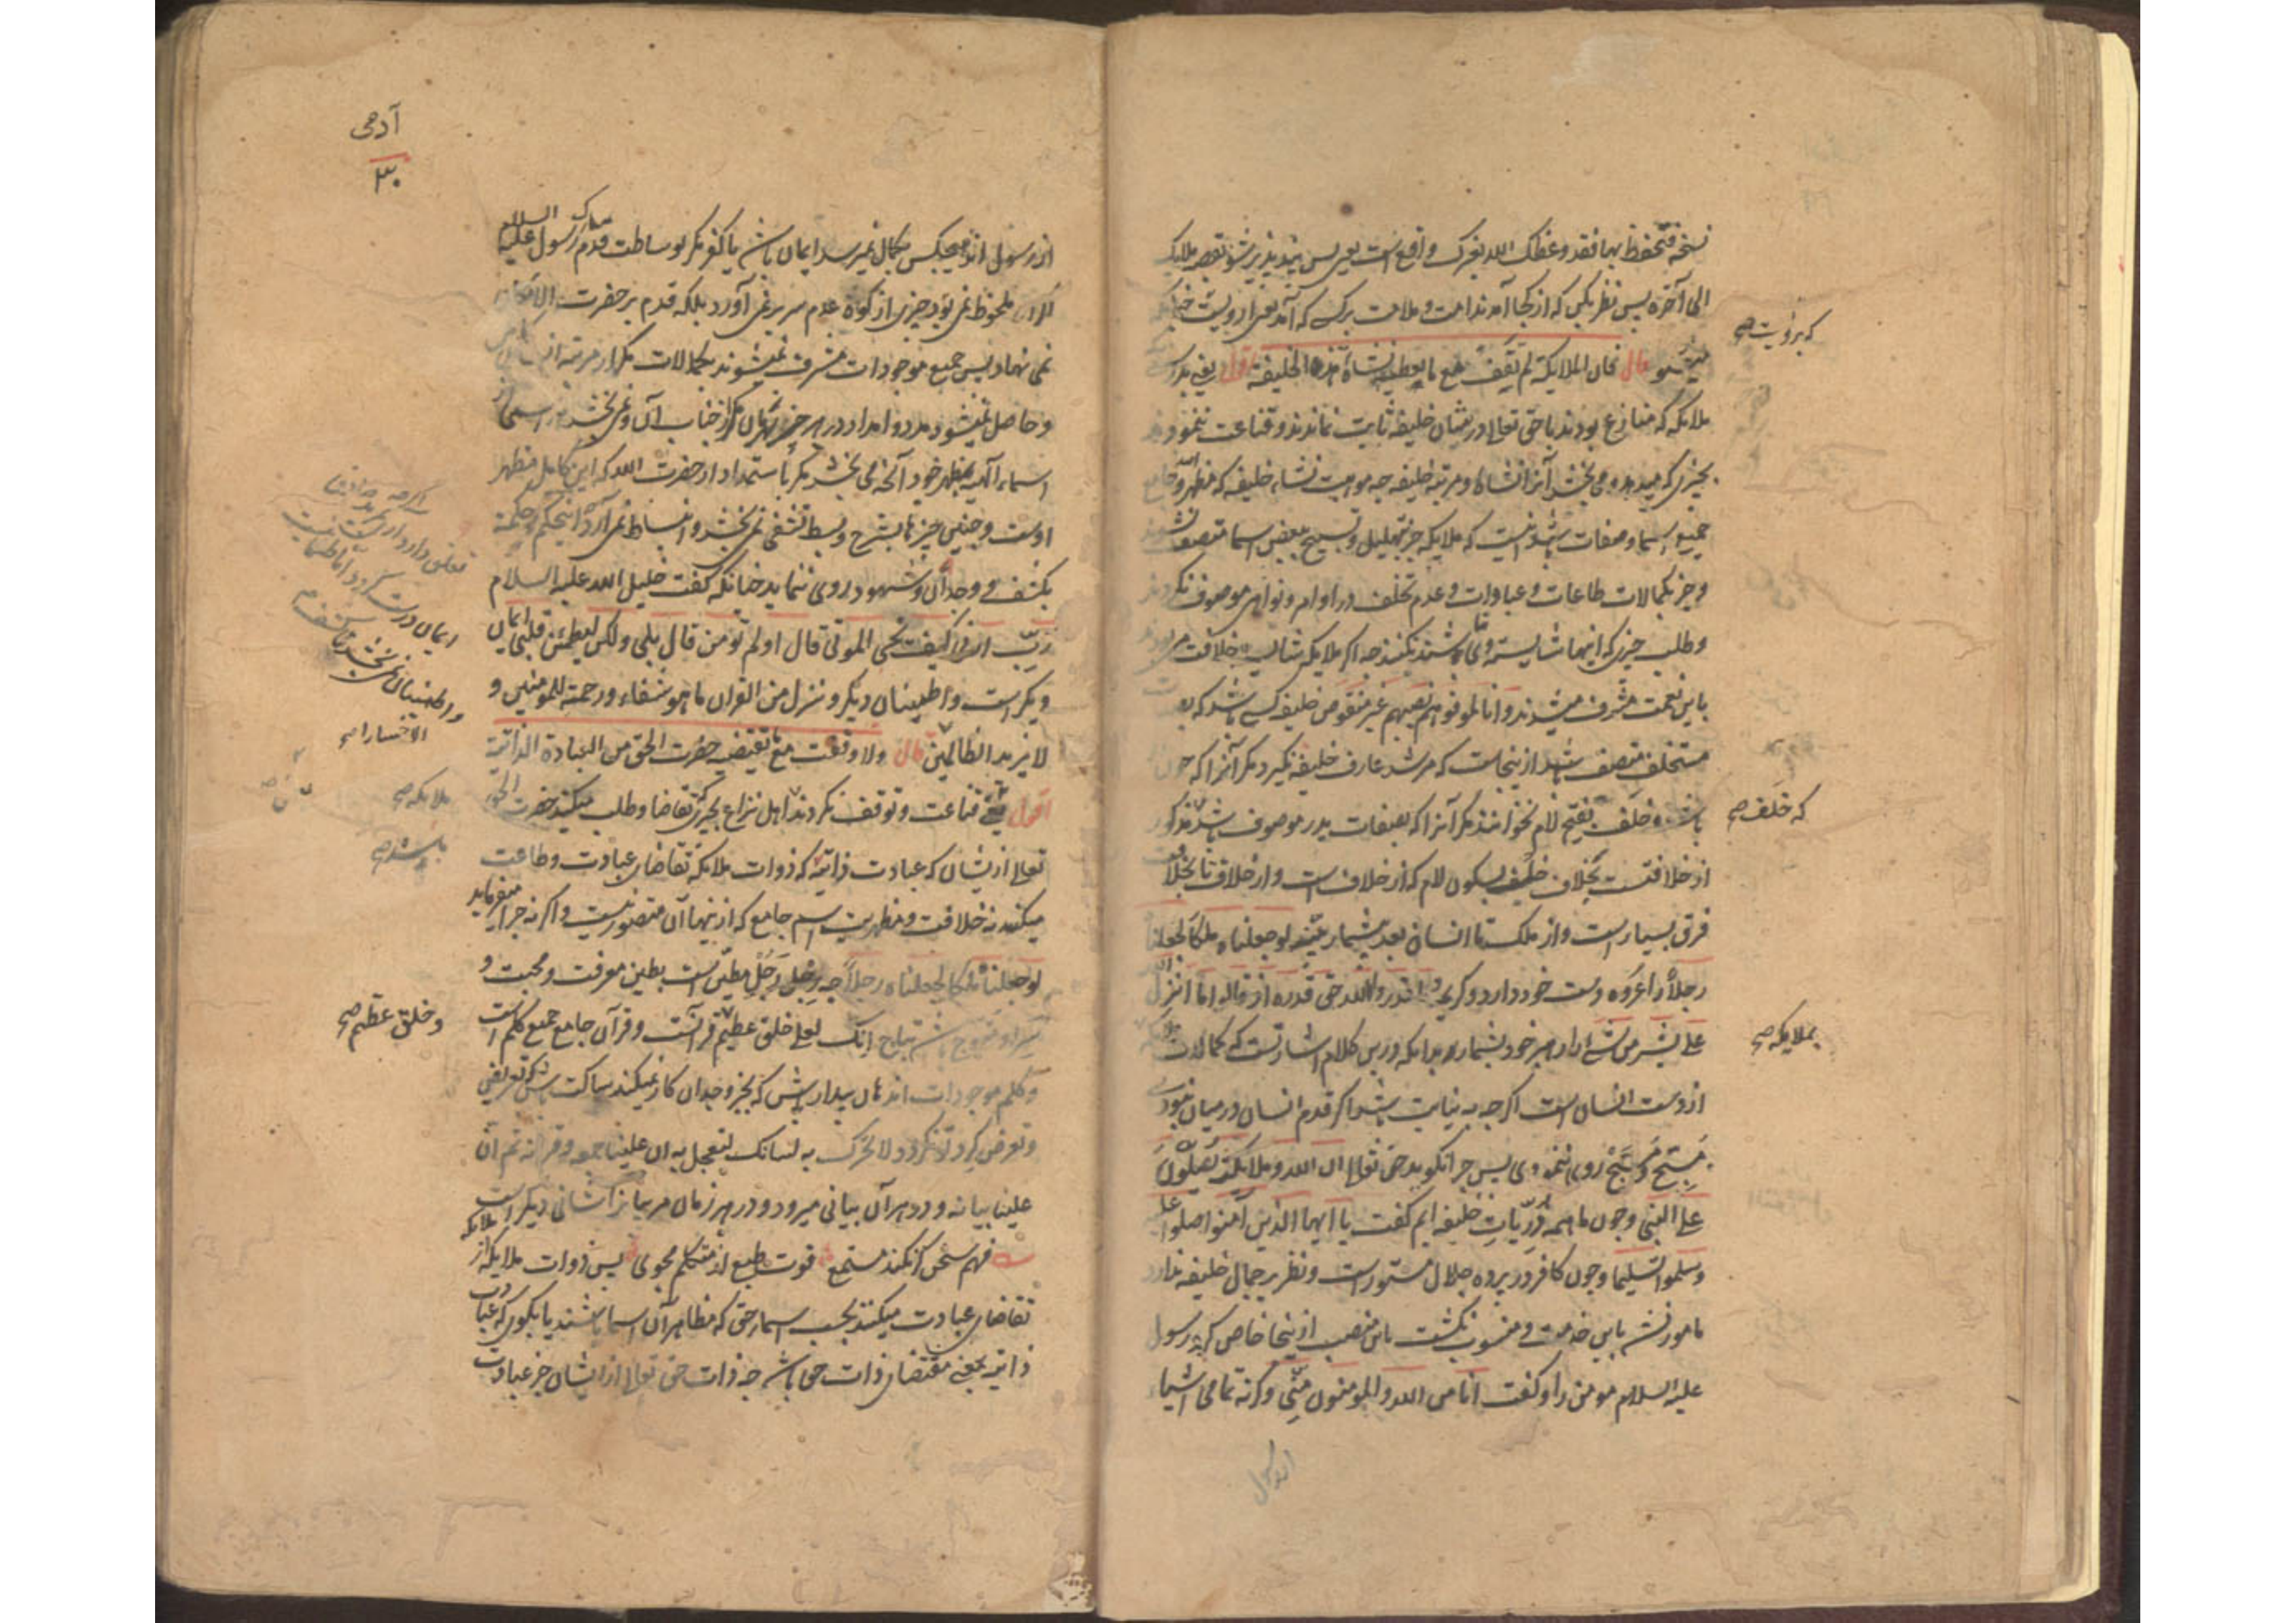 نسخه فتحفظ بها فقد وعظک الله بغیرک واقع است یعنی پس پند پذیر شو بقصه ملایک
الی آخره پس نظر کن که از کجا آمد ندامت و ملامت بر کسی که آمد یعنی از رویت
که بر رویت صح
قال فان الملایکة لم تقف مع ما تعطیه نشاة هذه الخلیفة اقول یعنی بدرستی
ملایکه که منازع بودند با حق تعالی در شان خلیفه ثابت نماندند و قناعت ننمودند
بچیزی که میدهد و می بخشد آنرا نشاة و مرتبه خلیفه چه موهبت نشاء خلیفه که مظهر و جامع
جمیع اسما و صفات باشد آنست که ملایکه جز بتهلیل و تسبیح ببعض اسما متصف نشوند
و جز بکمالات طاعات و عبادات و عدم تخلف در اوامر و نواهی موصوف نگردند
و طلب چیزی که اینها شایسته وی نباشند نکنند چه اگر ملایکه شایسته خلافت می بودند
باین نعمت مشرف میشدند و انا لموفوهم نصیبهم غیر منقوص خلیفه کسی باشد که به
مستخلف متصف باشد ازینجاست که مرشد عارف خلیفه نگیرد مگر آنرا که چون
باشد و خلف بفتح لام نخوانند مگر آنرا که بصفات پدر موصوف باشد مذکور
که خلف صح
از خلافتست بخلاف خلف بسکون لام که از خلاف است و از خلاف تا بخلافت
فرق بسیار است و از ملک تا انسان بعد بیشمار بینه لو جعلناه ملکا لجعلناه
رجلا را عروه دست خود دارد و کریمه و ما قدروا الله حق قدره اذ قالوا ما انزل الله
علی بشر من شیء را رهبر خود بشمارد بدانکه درین کلام اشارتست که کمالات ملایکه
بملایکه صح
از دست انسان است اگرچه بی نهایت باشد اگر قدم انسان در میان نبودی
مسبح و مسبح روی ننمودی پس چرا نگوید حق تعالی ان الله و ملایکته یصلون
علی النبی و چون ما همه ذریات خلیفه ایم گفت یا ایها الذین آمنوا صلوا علیه
و سلموا تسلیما و چون کافر در پرده جلال مستور است و نظر بر جمال خلیفه ندارد
مامور نشد باین خدمت و منسوب نگشت باین منصب ازینجا خاص کرد رسول
علیه السلام مومن را و گفت انا من الله و المومنون منی و کرنه تمامی اشیا
از رسول
آدمی
۳۰
از رسول اند و هیچکس بکمال نمیرسد ایمان باشد یا کفر مگر بوساطت قدم مبارک رسول علیه السلام
الآن ملحوظ نمی بود چیزی از کوه عدم سر بر نمی آورد بلکه قدم بر حضرت الامکان
نمی نهاد پس جمیع موجودات مشرف نمیشوند بکمالات مگر از مرتبه انسان کامل
و حاصل نمیشود مدد و امداد در هر چیز و هر زمان مگر از جناب آن و نمی بخشد هر اسمی از
اسماء الهیه بمظهر خود آنچه می بخشد مگر باستمداد از حضرت الله که این کامل مظهر
اوست و چنین چیزها بشرح و بسط تشفی نمی بخشد و انبساط نمی آرد
بکشف و وجدان و شهود روی ننماید چنانکه گفت خلیل الله علیه السلام
رب ارنی کیف تحیی الموتی قال اولم تؤمن قال بلی ولکن لیطمئن قلبی ایمان
دیگر است و اطمینان دیگر و ننزل من القران ما هو شفاء و رحمة للمومنین و
لا یزید الظالمین قال ولا وقفت مع ما تقتضیه حضرت الحق من العبادة الذاتیة
الا خسارا صح
اقول یعنی قناعت و توقف نکردند اهل نزاع بچیزی که تقاضا و طلب میکند حضرت الحق
ملایکه صح
تعالی از ایشان که عبادت ذاتیه که ذوات ملایکه تقاضای عبادت و طاعت
باشد صح
میکنند نه خلافت و مظهریت اسم جامع که ازینها آن متصور نیست و اگر نه چرا میفرماید
لو جعلناه ملکا لجعلناه رجلا چه رجل رجل مطین است بطین معرفت و محبت و
انک لعلی خلق عظیم قرآنست و قرآن جامع جمیع کلم است
و خلق عظیم صح
و کلم موجودات اند هان بیدار باش که بجز وجدان کار نمیکند ساکت باش که تعریفی
و تعرض گرد تو نگردد لا تحرک به لسانک لتعجل به ان علینا جمعه و قرآنه ثم ان
علینا بیانه و در هر آن بیانی میرود و در هر زمان مر بیانرا شانی دیگر است
فهم سخن گر نکند مستمع قوت طبع از متکلم مجوی پس ذوات ملایکه از ملایکه
تقاضای عبادت میکنند بحسب اسمای حق که مظاهر آن اسما باشند یا بگوی که عبادت
ذاتیه یعنی مقتضای ذات حق باشد چه ذات حق تعالی از ایشان جز عبادت